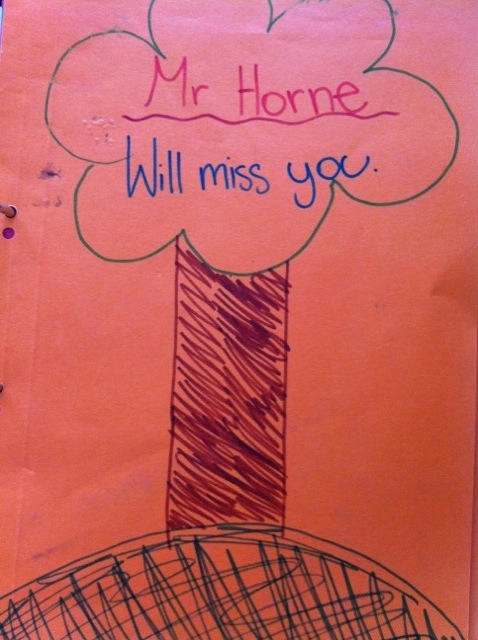 Mr Horne
Will miss you.